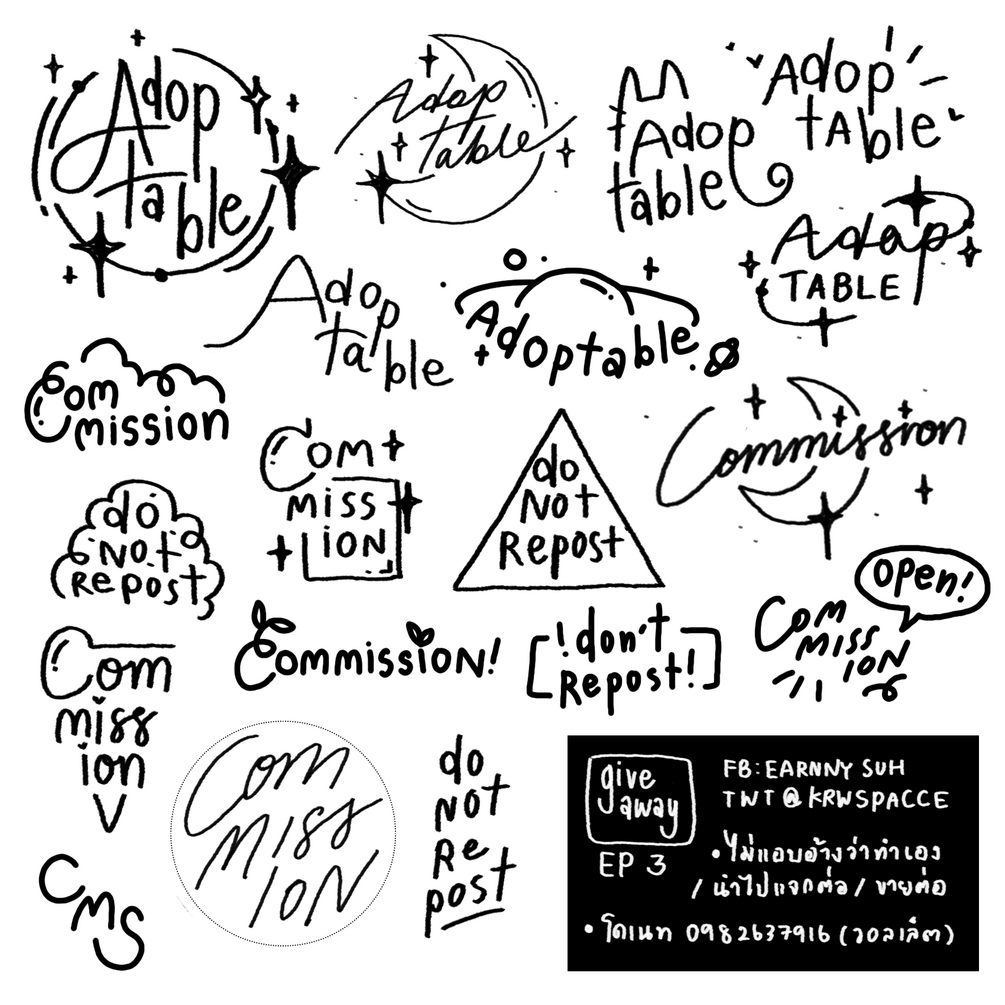 Adop
table
Adop
table
Adop
table
Adop
tAble
Adop
TABLE
Adop
table
Adoptable
Com
mission
Com
miss
ion
do
Not
Repost
Commission
do
Not
Repost
Open!
Com
miss
ion
Commission!
!don't
Repost!
Com
miss
ion
Com
miss
ion
do
Not
Re
post
CMS
give
away
EP 3
FB: EARNNY SUH
TWT @KRWSPACCE
• ไม่แอบอ้างว่าทำเอง
/ นำไปแจกต่อ / ขายต่อ
• โดเนท 0982637916 (วอลเล็ต)